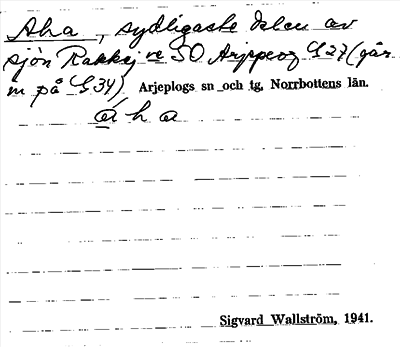 Aha, sydligaste delen av
sjön Rakkejävre SO Arjeplog G27 (går
in på G 34) Arjeplogs sn och tg, Norrbottens län.
áha
Sigvard Wallström, 1941.